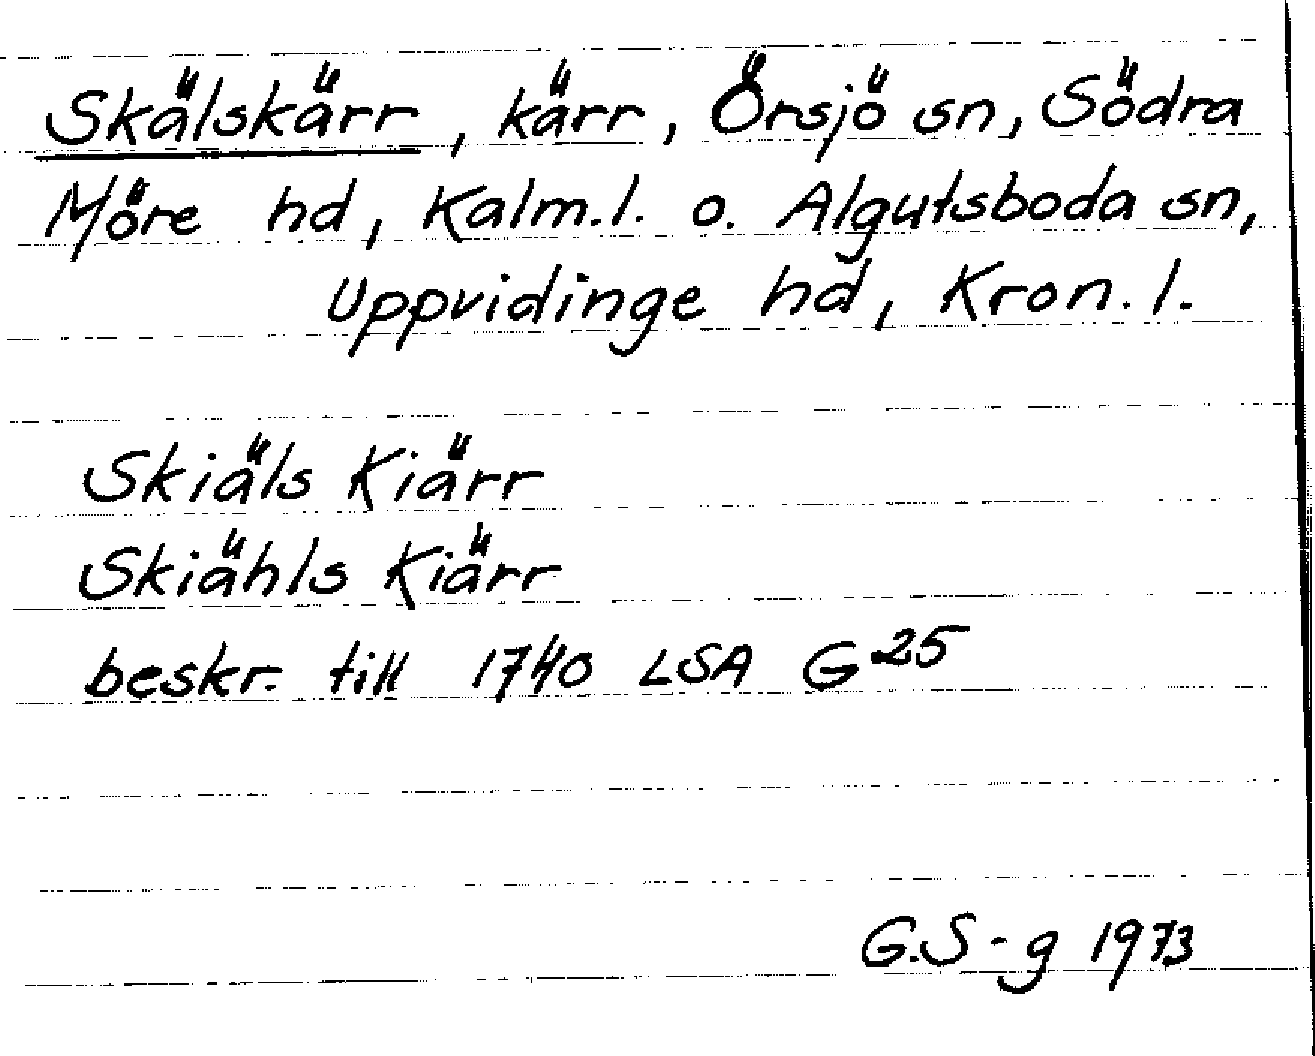 Skälskärr, kärr, Örsjö sn, Södra
Möre hd, Kalm.l. o. Algutsboda sn,
Uppvidinge hd, Kron. l.
Skiäls Kiärr
Skiähls Kiärr
beskr. till 1740 LSA G 25
G.S-g 1973